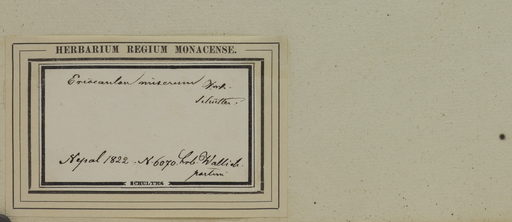 HERBARIUM REGIUM MONACENSE.
Eriocaulon miserum Kcke.
Nepal 1822. N 6070. hrb. Wallich.
partim
SCHULTES